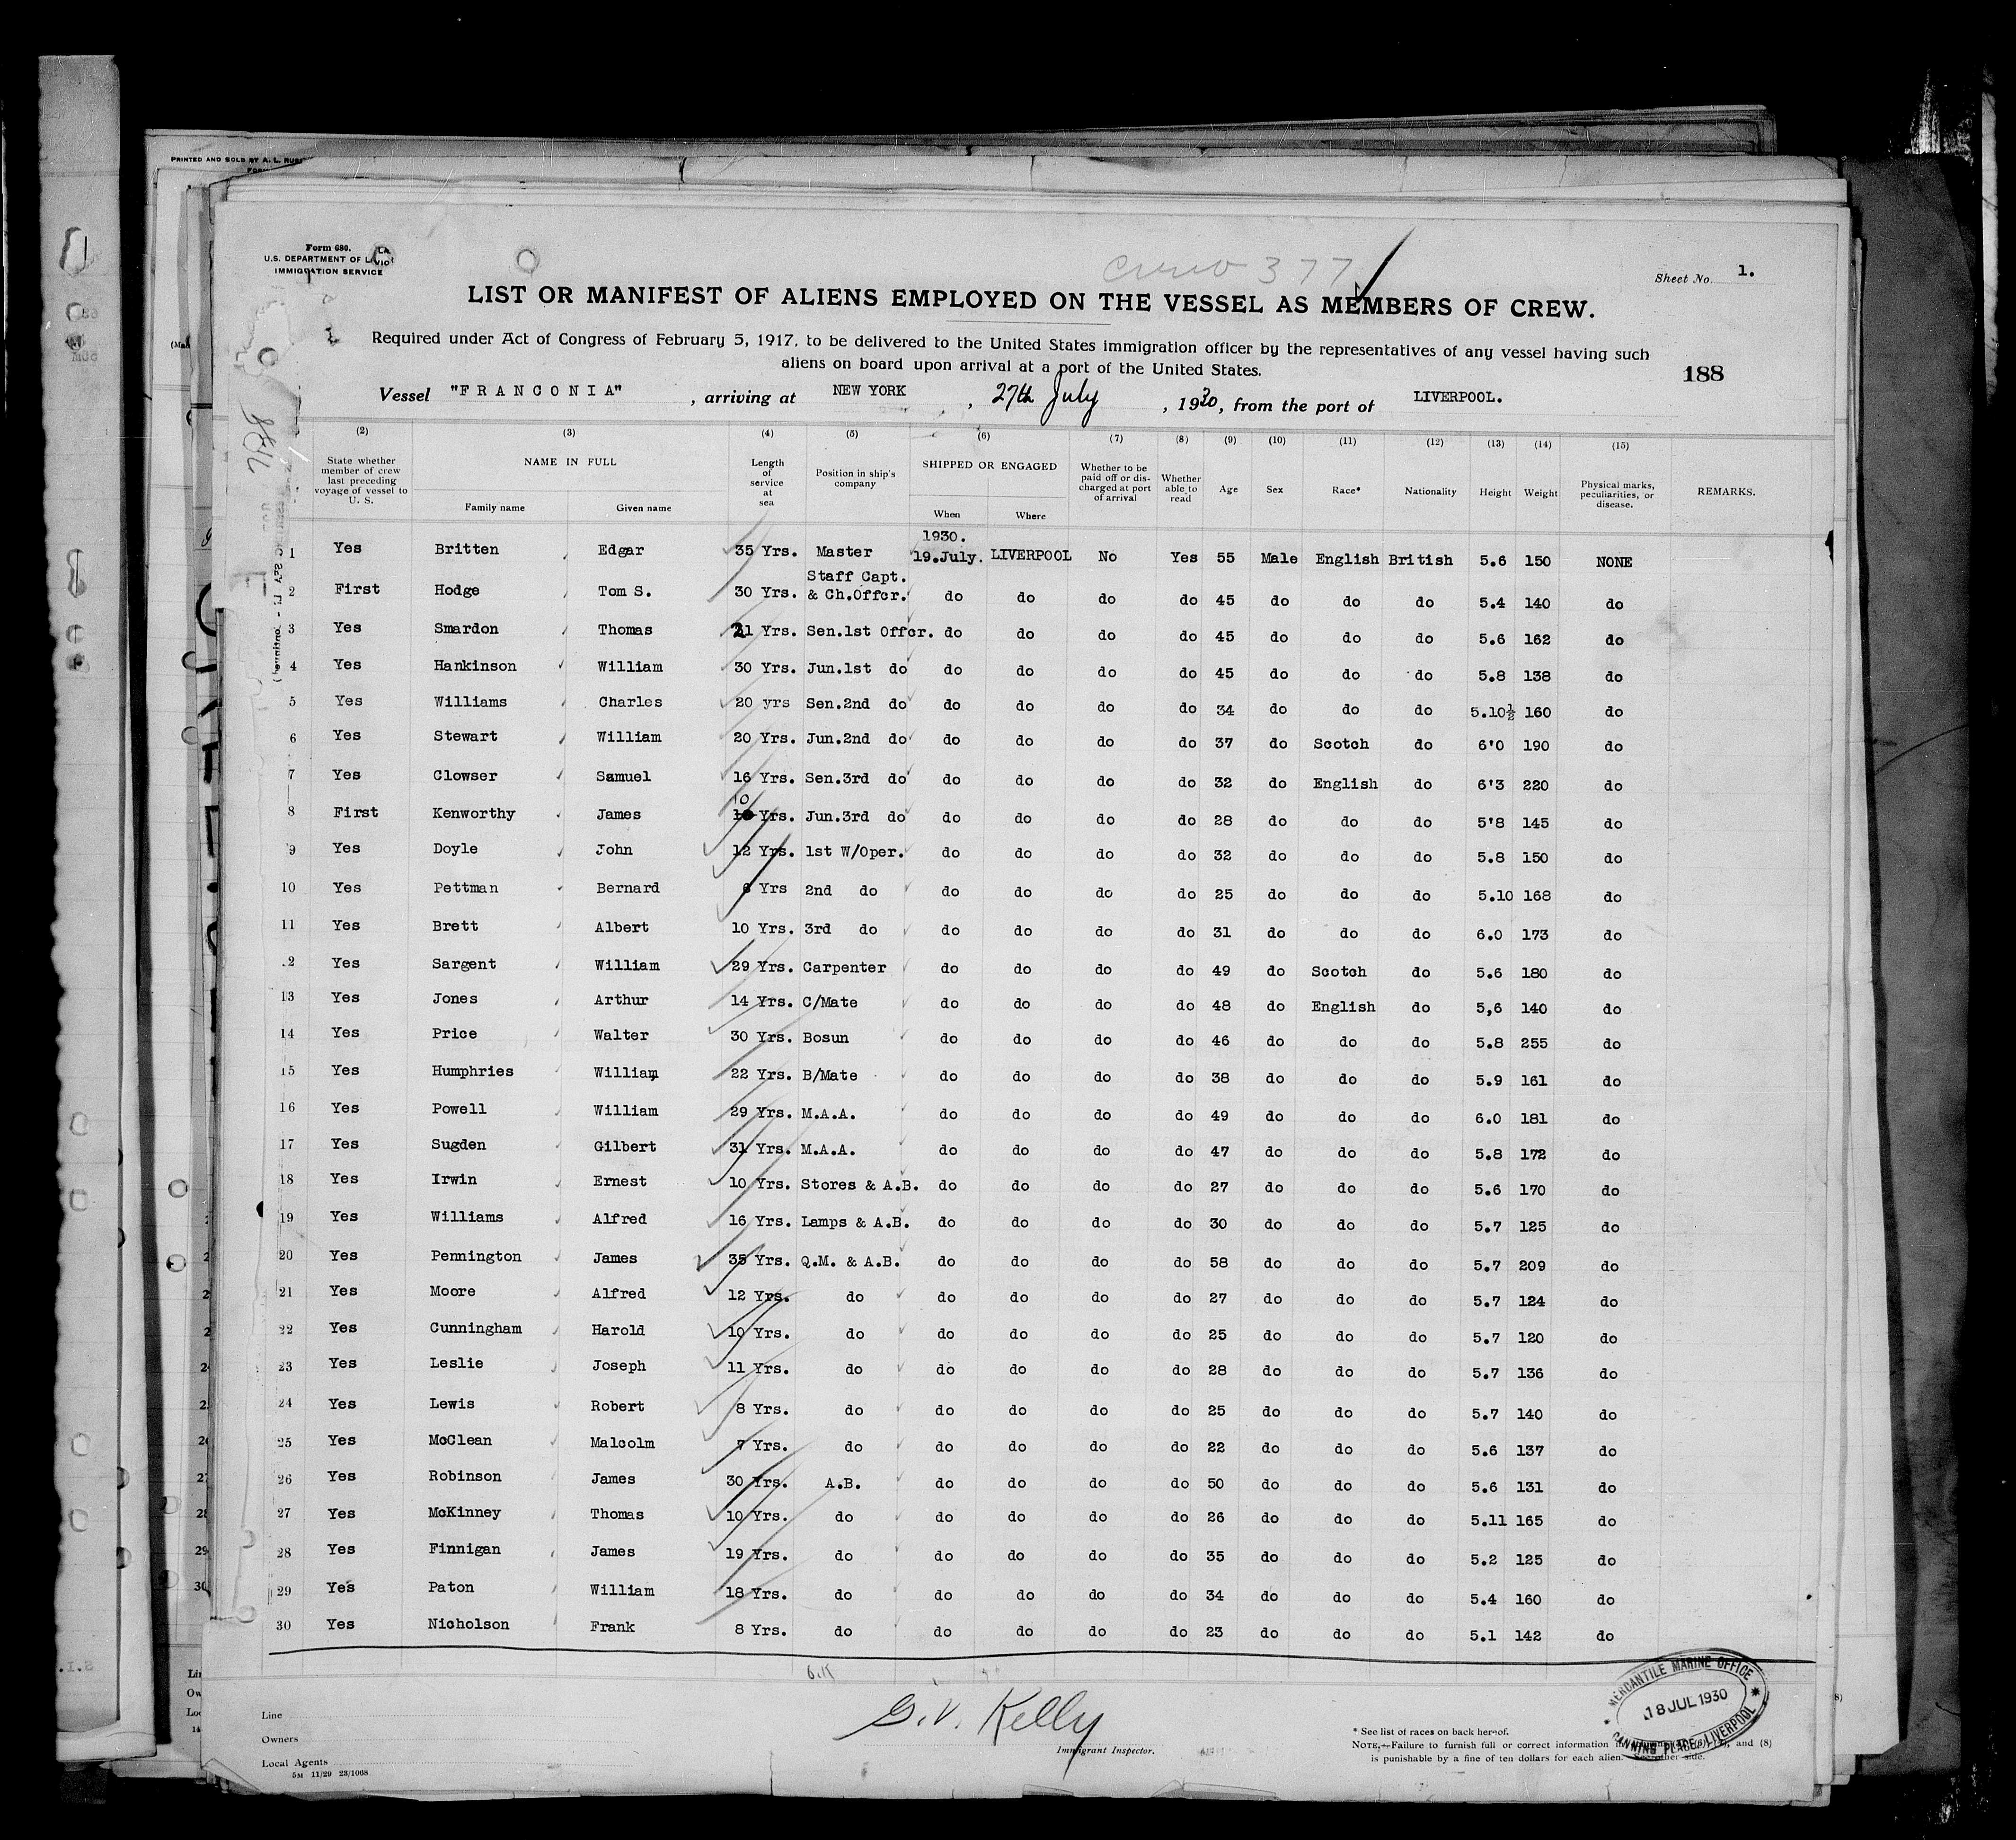 PRINTED AND SOLD BY A. L.
Form 680.
U.S. DEPARTMENT OF
IMMIGRATION SERVICE
Crew 377
Sheet No. 1.
LIST OR MANIFEST OF ALIENS EMPLOYED ON THE VESSEL AS MEMBERS OF CREW.
Required under Act of Congress of February 5, 1917, to be delivered to the United States immigration officer by the representatives of any vessel having such
aliens on board upon arrival at a port of the United States.
188
Vessel "FRANCONIA", arriving at NEW YORK, 27th July, 1930, from the port of LIVERPOOL.
(2) (3) (4) (5) (6) (7) (8) (9) (10) (11) (12) (13) (14) (15)
State whether member of crew last preceding voyage of vessel to U. S. NAME IN FULL Family name Given name Length of service at sea Position in ship's company SHIPPED OR ENGAGED When Where Whether to be paid off or discharged at port of arrival Whether able to read Age Sex Race* Nationality Height Weight Physical marks, peculiarities, or disease. REMARKS.
1930.
1 Yes Britten Edgar 35 Yrs. Master 19.July. LIVERPOOL No Yes 55 Male English British 5.6 150 NONE
2 First Hodge Tom S. 30 Yrs. Staff Capt. & Ch.Offcr. do do do do 45 do do do 5.4 140 do
3 Yes Smardon Thomas 21 Yrs. Sen.1st Offcr. do do do do 45 do do do 5.6 162 do
4 Yes Hankinson William 30 Yrs. Jun.1st do do do do do 45 do do do 5.8 138 do
5 Yes Williams Charles 20 yrs Sen.2nd do do do do do 34 do do do 5.10½ 160 do
6 Yes Stewart William 20 Yrs. Jun.2nd do do do do do 37 do Scotch do 6'0 190 do
7 Yes Clowser Samuel 16 Yrs. Sen.3rd do do do do do 32 do English do 6'3 220 do
8 First Kenworthy James 10 Yrs. Jun.3rd do do do do do 28 do do do 5'8 145 do
9 Yes Doyle John 12 Yrs. 1st W/Oper. do do do do 32 do do do 5.8 150 do
10 Yes Pettman Bernard 6 Yrs 2nd do do do do do 25 do do do 5.10 168 do
11 Yes Brett Albert 10 Yrs. 3rd do do do do do 31 do do do 6.0 173 do
2 Yes Sargent William 29 Yrs. Carpenter do do do do 49 do Scotch do 5.6 180 do
13 Yes Jones Arthur 14 Yrs. C/Mate do do do do 48 do English do 5,6 140 do
14 Yes Price Walter 30 Yrs. Bosun do do do do 46 do do do 5.8 255 do
15 Yes Humphries William 22 Yrs. B/Mate do do do do 38 do do do 5.9 161 do
16 Yes Powell William 29 Yrs. M.A.A. do do do do 49 do do do 6.0 181 do
17 Yes Sugden Gilbert 31 Yrs. M.A.A. do do do do 47 do do do 5.8 172 do
18 Yes Irwin Ernest 10 Yrs. Stores & A.B. do do do do 27 do do do 5.6 170 do
19 Yes Williams Alfred 16 Yrs. Lamps & A.B. do do do do 30 do do do 5.7 125 do
20 Yes Pennington James 35 Yrs. Q.M. & A.B. do do do do 58 do do do 5.7 209 do
21 Yes Moore Alfred 12 Yrs. do do do do do 27 do do do 5.7 124 do
22 Yes Cunningham Harold 10 Yrs. do do do do do 25 do do do 5.7 120 do
23 Yes Leslie Joseph 11 Yrs. do do do do do 28 do do do 5.7 136 do
24 Yes Lewis Robert 8 Yrs. do do do do do 25 do do do 5.7 140 do
25 Yes McClean Malcolm 7 Yrs. do do do do do 22 do do do 5.6 137 do
26 Yes Robinson James 30 Yrs. A.B. do do do do 50 do do do 5.6 131 do
27 Yes McKinney Thomas 10 Yrs. do do do do do 26 do do do 5.11 165 do
28 Yes Finnigan James 19 Yrs. do do do do do 35 do do do 5.2 125 do
29 Yes Paton William 18 Yrs. do do do do do 34 do do do 5.4 160 do
30 Yes Nicholson Frank 8 Yrs. do do do do do 23 do do do 5.1 142 do
G.V. Kelly
Immigrant Inspector.
Line
Owners
Local Agents
5M 11/29 23/1068
* See list of races on back hereof.
NOTE.—Failure to furnish full or correct information and (8)
is punishable by a fine of ten dollars for each alien. See other side.
MERCANTILE MARINE OFFICE
18 JUL 1930
CANNING PLACE, LIVERPOOL